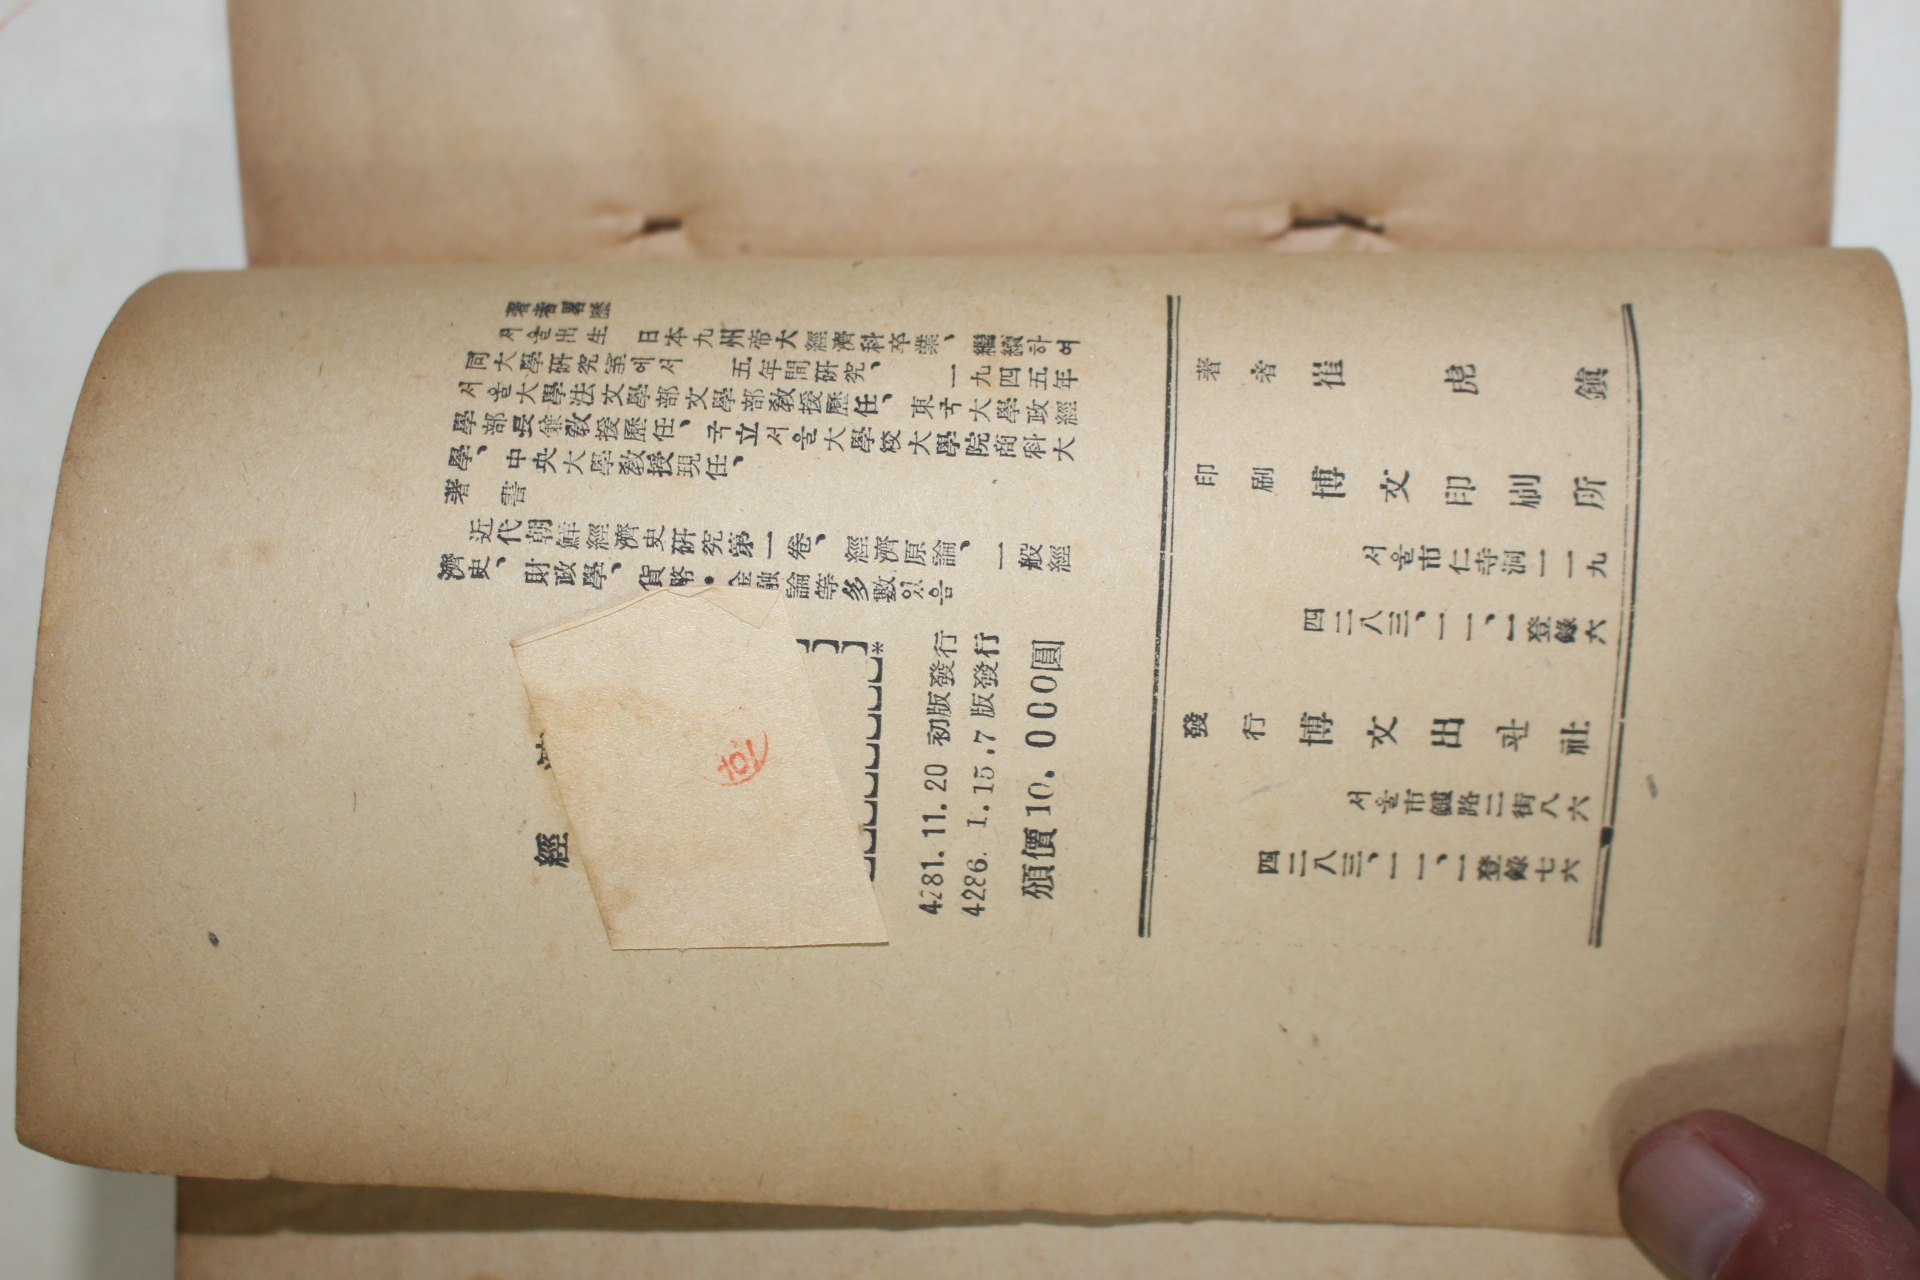 著者畧歷
서울出生 日本九州帝大經濟科卒業、繼續하여
同大學硏究室에서 五年間硏究、一九四五年
서울大學法文學部文學部敎援歷任、東국大學政經
學部長兼敎援歷任、국立서울大學校大學院商科大
學、中央大學敎授現任、
著書
近代朝鮮經濟史硏究第一卷、經濟原論、一般經
濟史、財政學、貨幣・金融論等多數있음
經
4281.11.20 初版發行
4286.1.15.7版發行
頒價10.000圓
著者 崔虎鎭
印刷 博文印刷所
서울市仁寺洞一一九
四二八三、一一、一登錄六
發行 博文出판社
서울市鍾路二街八六
四二八三、一一、一登錄七六